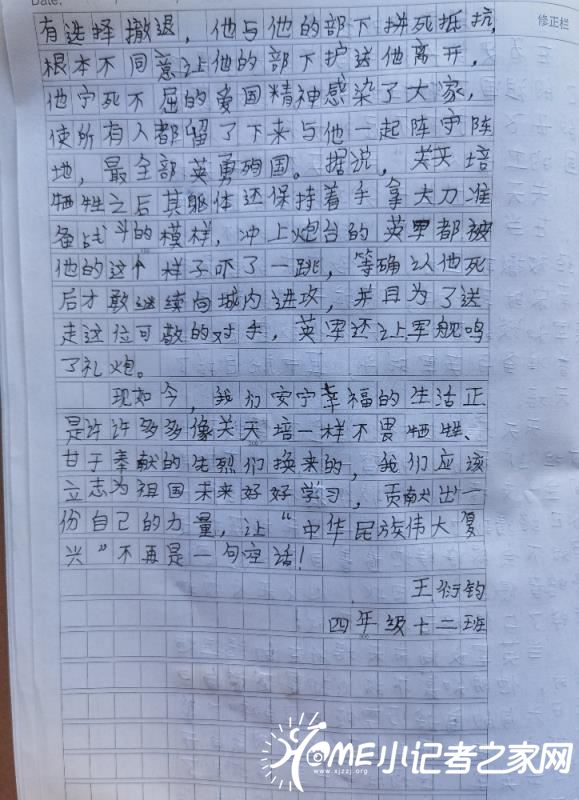 Date:
修正栏
有选择撤退，他与他的部下拼死抵抗，
根本不同意让他的部下护送他离开，
他宁死不屈的爱国精神感染了大家，
使所有人都留了下来与他一起阵守阵
地，最全部英勇殉国。据说，关天培
牺牲之后其躯体还保持着手拿大刀准
备战斗的模样，冲上炮台的英军都被
他的这个样子吓了一跳，等确认他死
后才敢继续向城内进攻，并且为了送
走这位可敬的对手，英军还让军舰鸣
了礼炮。
现如今，我们安宁幸福的生活正
是许许多多像关天培一样不畏牺牲、
甘于奉献的先烈们换来的，我们应该
立志为祖国未来好好学习，贡献出一
份自己的力量，让“中华民族伟大复
兴”不再是一句空话！
王衍钧
四年级十二班
HOME小记者之家网
www.xjzzj.org